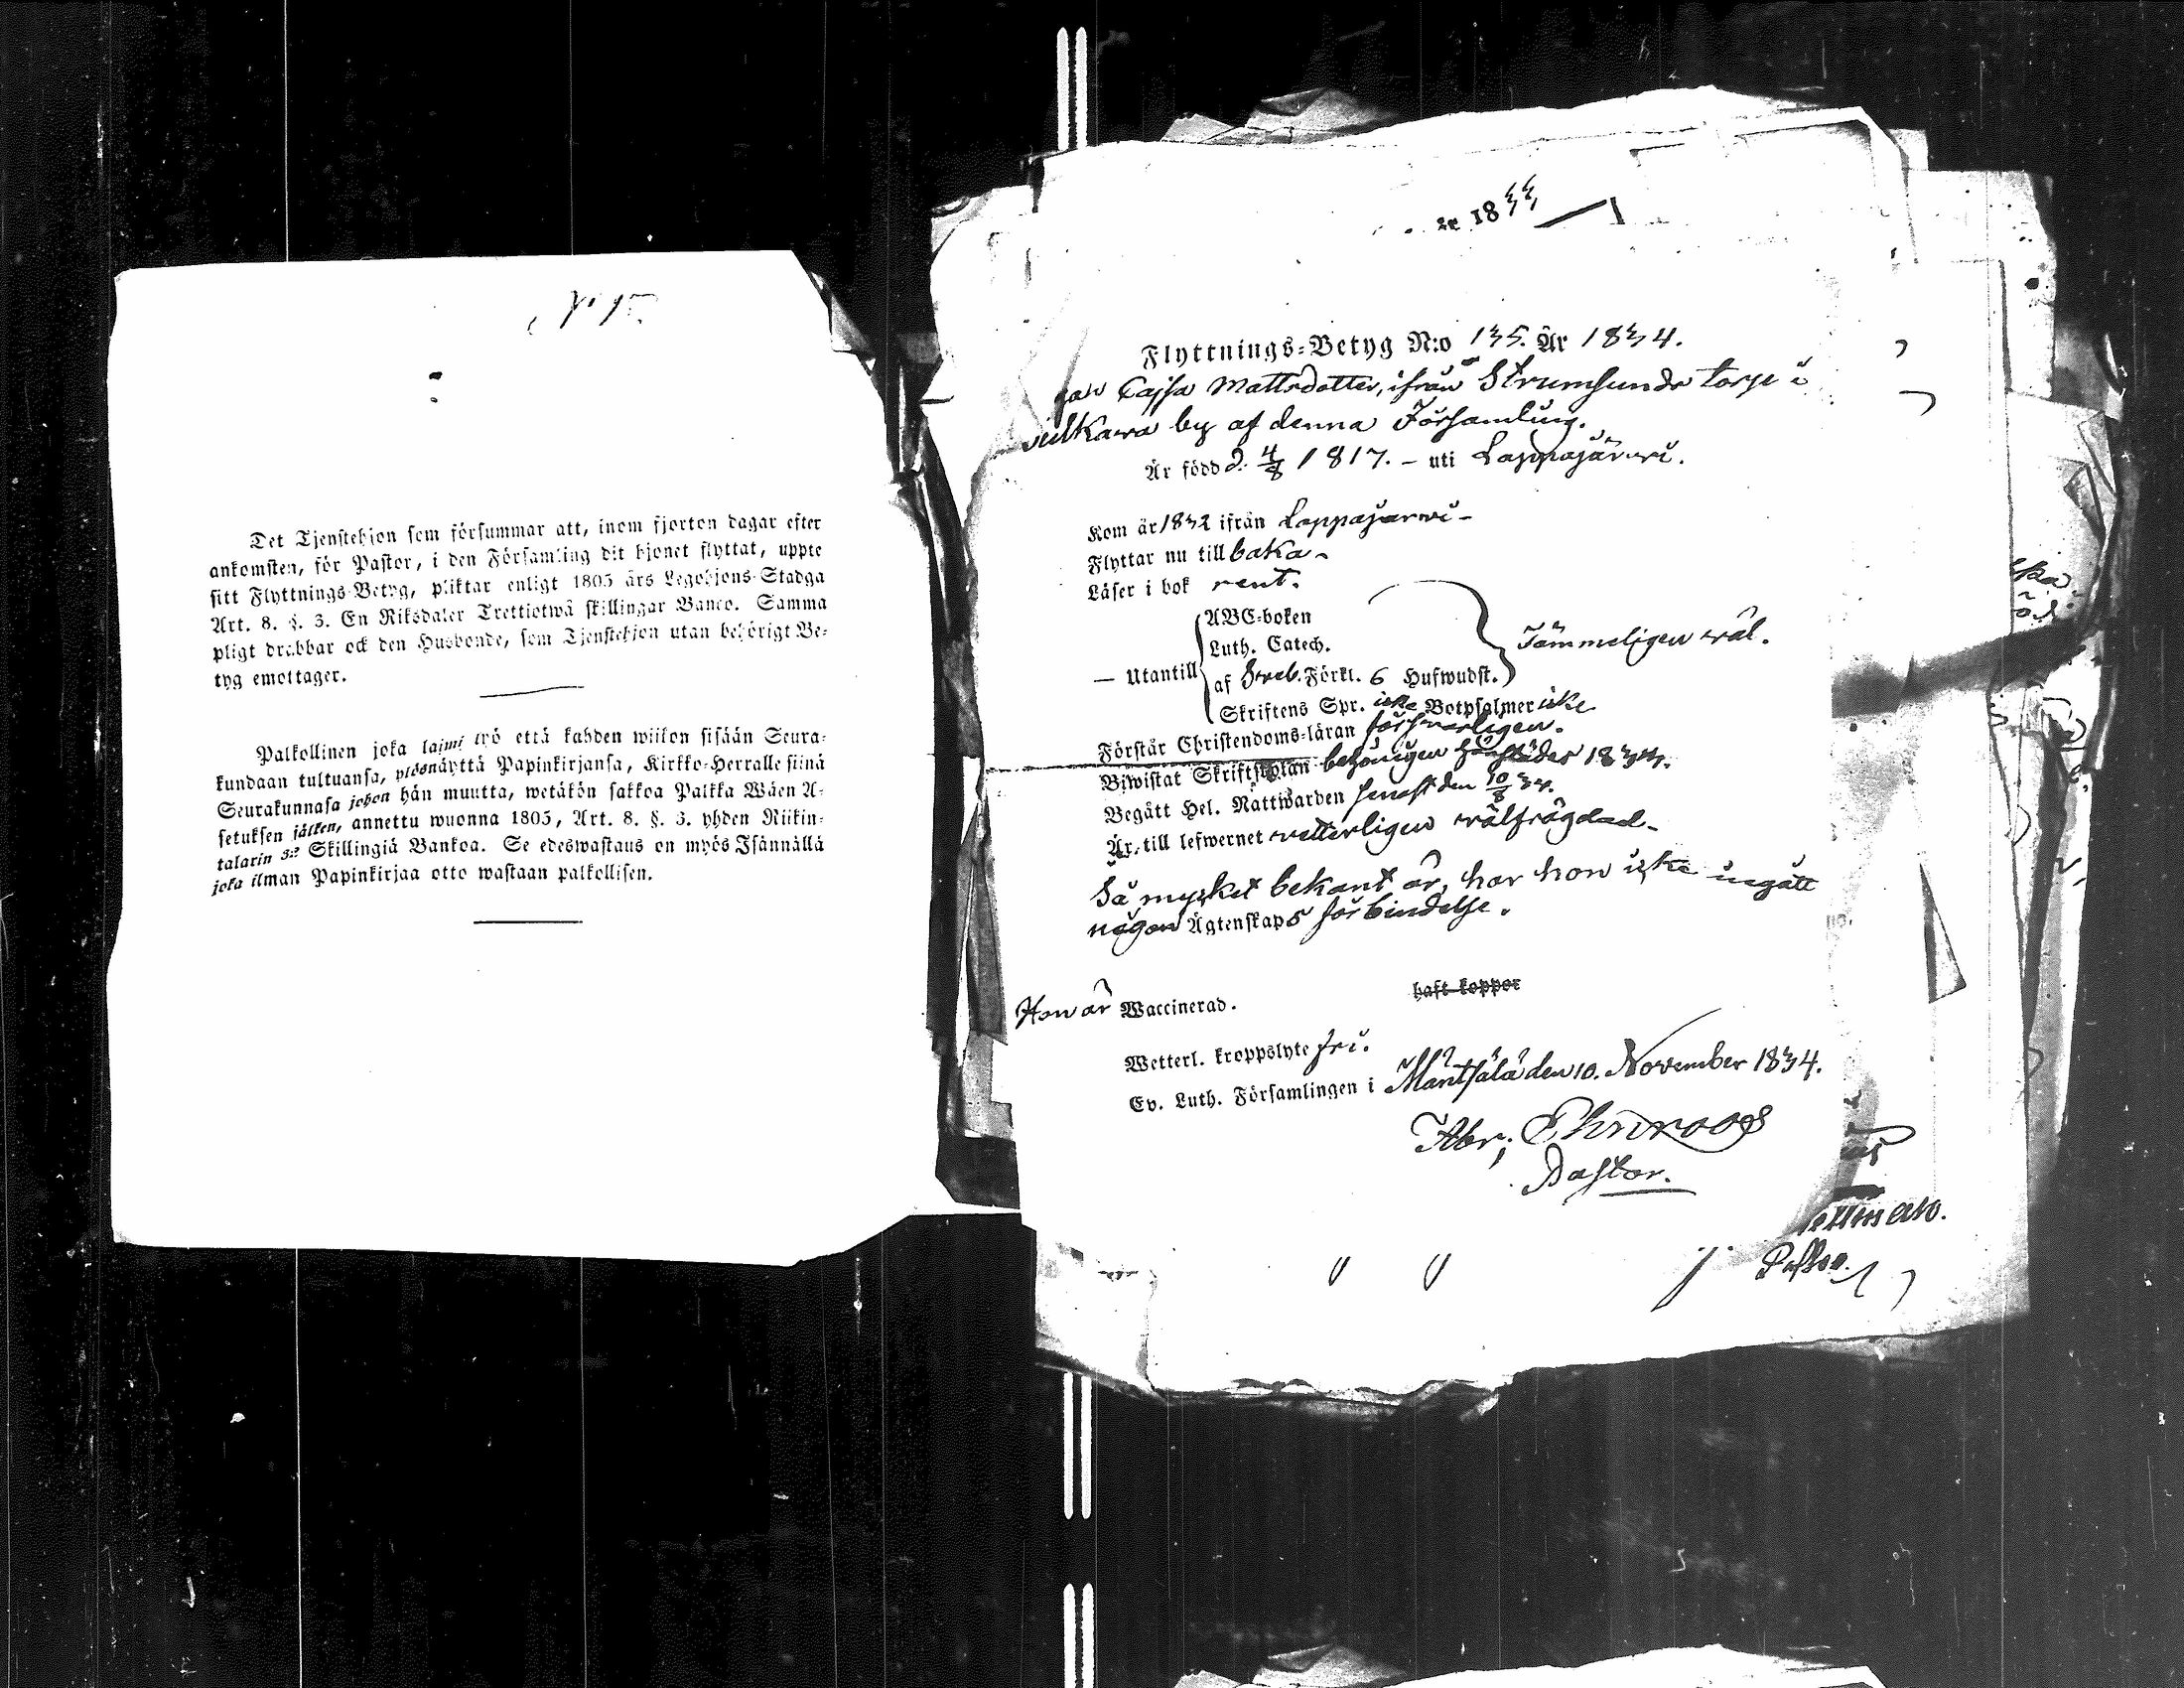 Det Tjenstehjon som försummar att, inom fjorton dagar efter
ankomsten, för Pastor, i den Församling dit hjonet flyttat, uppte
sitt Flyttnings-Betyg, pliktar enligt 1805 års Legohjons-Stadga
Art. 8. §. 3. En Riksdaler Trettiotwå skillingar Banco. Samma
pligt drabbar ock den Husbonde, som Tjenstehjon utan behörigt Be-
tyg emottager.
Palkollinen joka laimi lyö että kahden wiikon sisään Seura-
kundaan tultuansa, ylösnäyttä Papinkirjansa, Kirkko-Herralle siinä
Seurakunnasa johon hän muutta, wetäkön sakkoa Palkka Wäen A-
setuksen jälken, annettu wuonna 1805, Art. 8. §. 3. yhden Riikin-
talarin 32 Skillingiä Bankoa. Se edeswastaus on myös Isännällä
joka ilman Papinkirjaa otto wastaan palkollisen.
år 1833
Flyttnings-Betyg N:o 135. År 1834.
Cajsa Mattsdotter, ifrån Strumsunds torp i
by af denna Församling.
Är född d. 4/8 1817. – uti Lappajärwi.
Kom år 1832 ifrån Lappajärwi –
Flyttar nu till baka –
Läser i bok rent.
ABC-boken
Luth. Catech.
— Utantill af Sweb. Förkl. 6 Hufwudst. Tämmeligen wäl.
Skriftens Spr. icke Botpsalmer icke
Förstår Christendoms-läran försvarligen.
Biwistat Skriftskolan behörigen härstädes 1834.
Begått Hel. Nattwarden senast den 10/8 34.
Är till lefwernet vetterligen wälfrägdad –
Så mycket bekant är, har hon icke ingått
någon Ägtenskaps förbindelse.
haft koppor
Hon är Waccinerad.
Wetterl. kroppslyte fri.
Ev. Luth. Församlingen i Mäntsälä den 10. November 1834.
Abr; Ehnroos
Pastor.
Pastor.